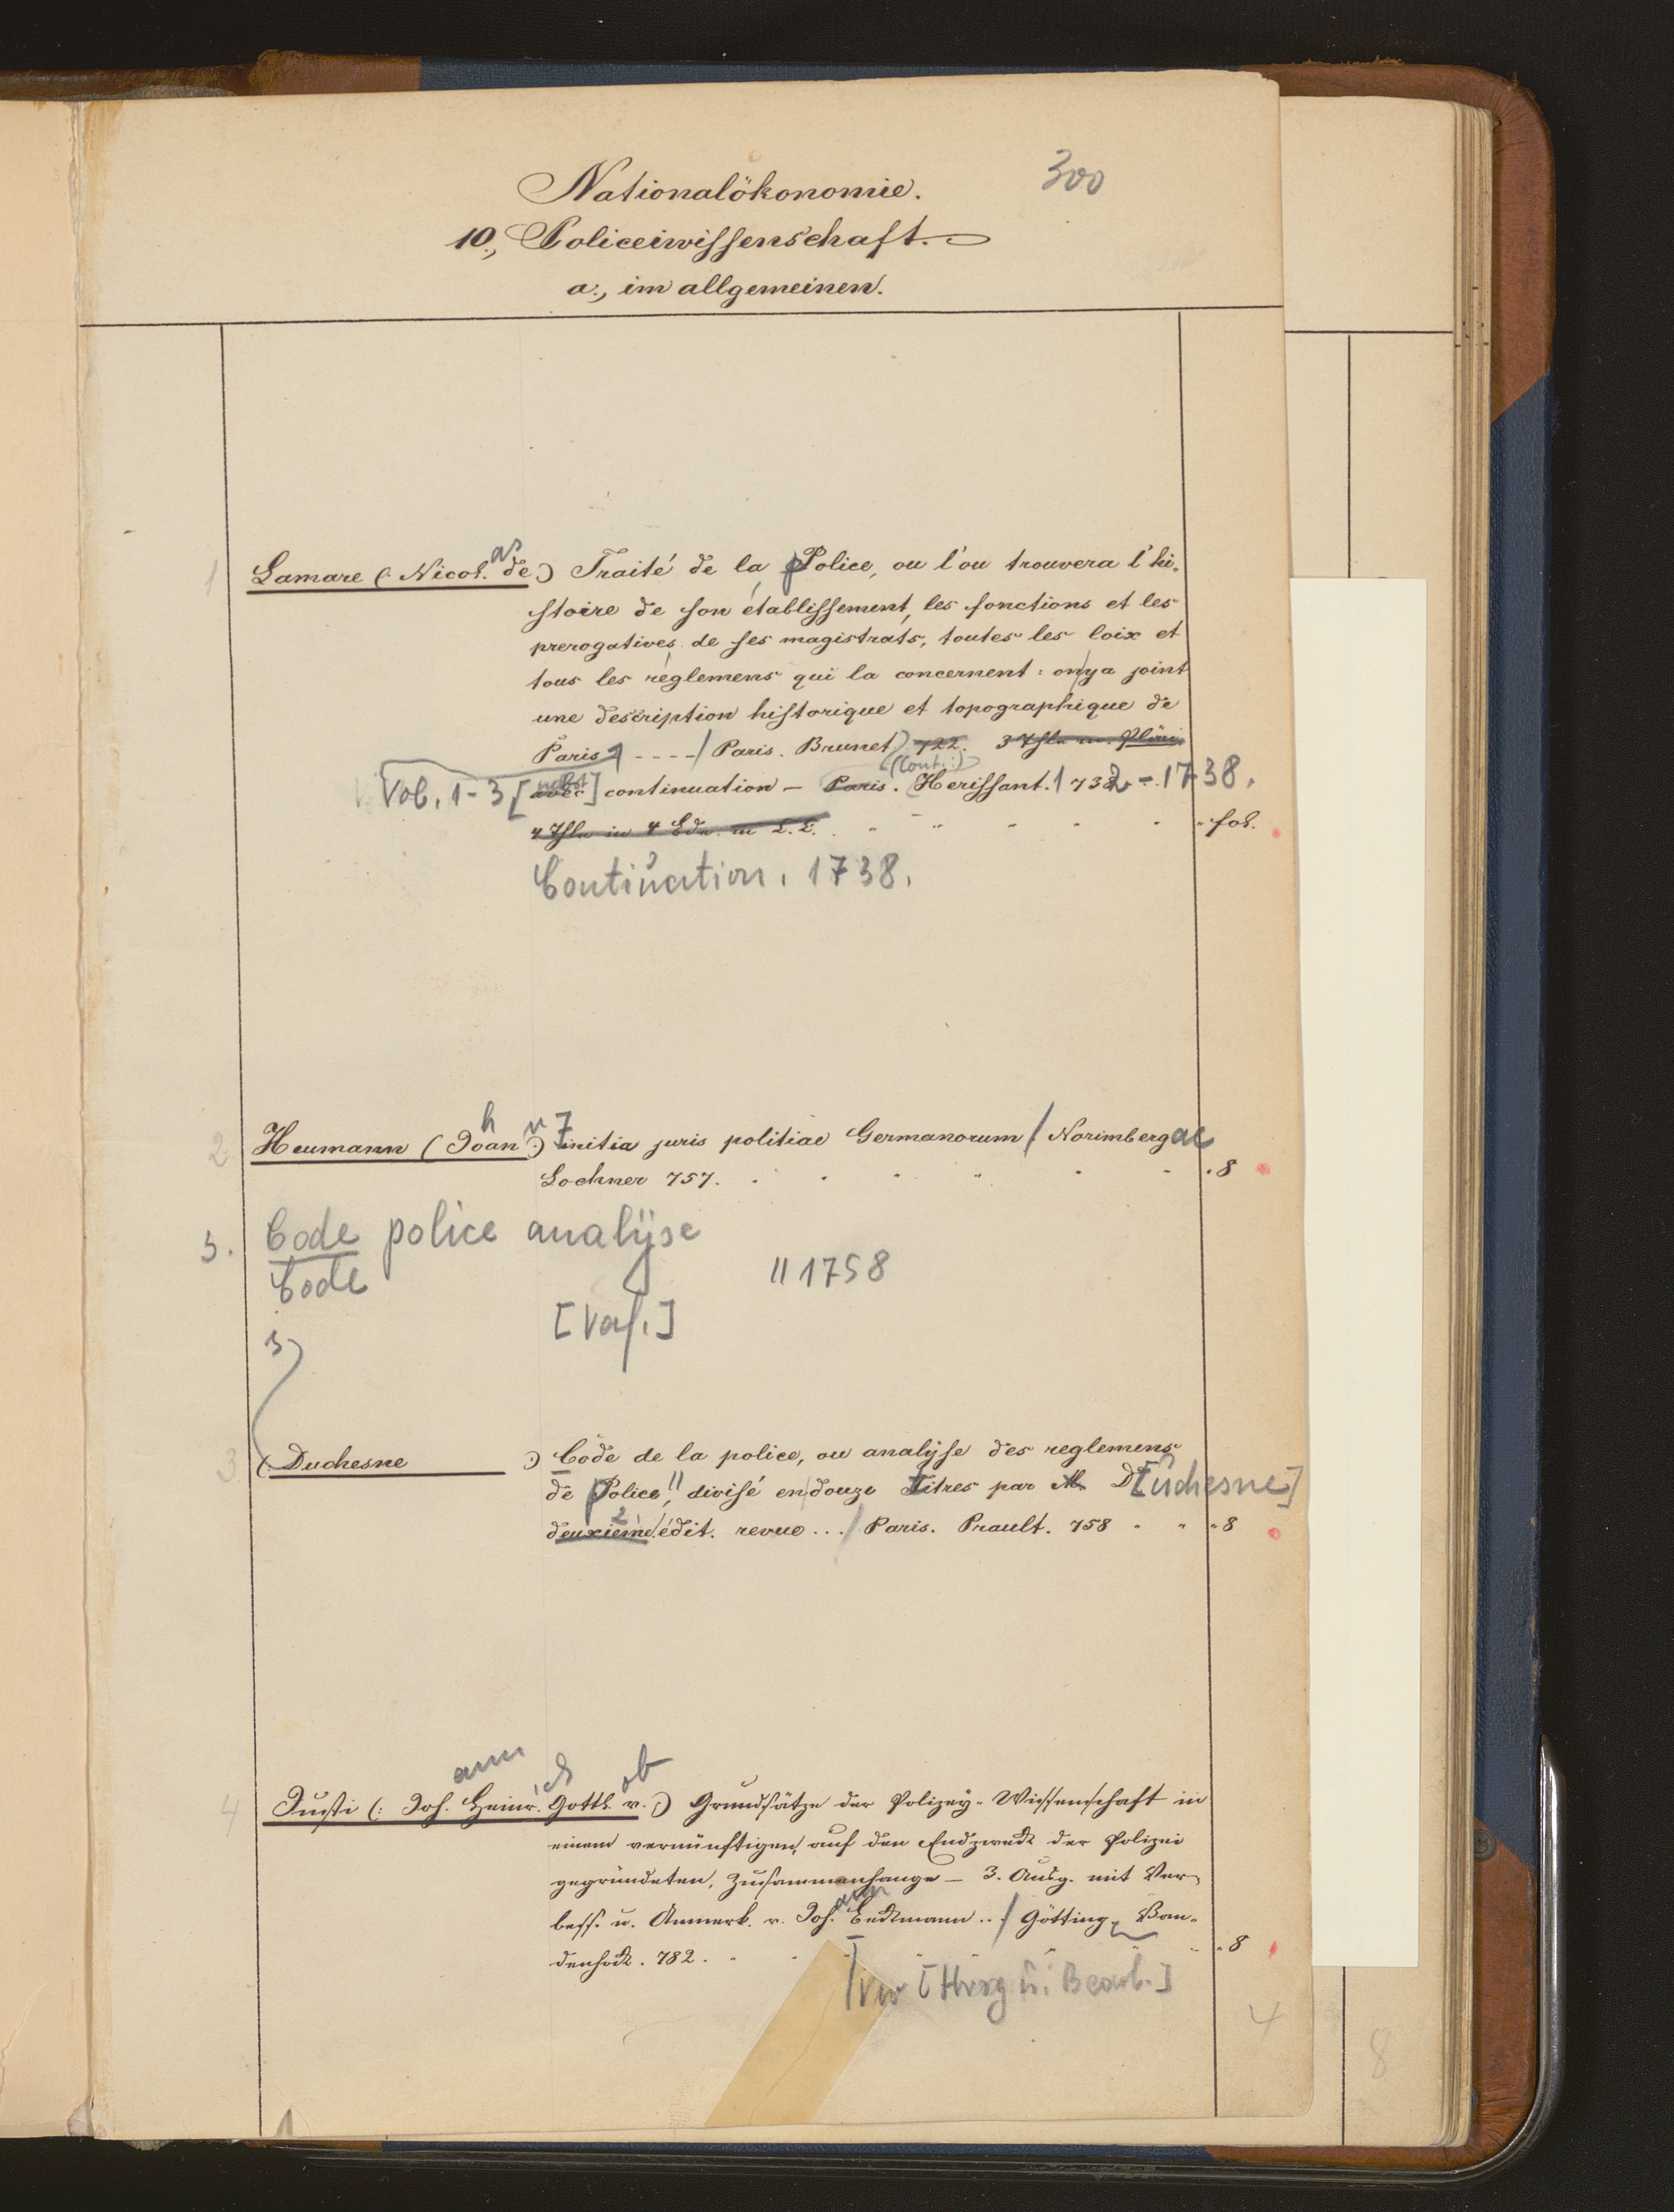 Nationalökonomie.
300
10., Policeiwissenschaft.
a., im allgemeinen.
1 Lamare (: Nicol.as de:) Traité de la Police, ou l'on trouvera l'hi-
stoire de son établissement, les fonctions et les
prerogatives de ses magistrats, toutes les loix et
tous les réglemens qui la concernent : on y a joint
une description historique et topographique de
Paris ---- / Paris. Brunet) 722. 3 Thle m. Pläni.
(Cont.:)
Vol. 1-3 [avec nebst] continuation – Paris. Herissant. 1732 - 1738.
4 Thle in 4 Bdn. fol.
Continuation. 1738.
2 Heumann (Johann:) Initia juris politiae Germanorum / Norimbergae
Lochner 757. 8
3. Code police analyse
Code " 1758
[Verf.]
3)
3 (: Duchesne :) Code de la police, ou analyse des reglemens
de Police", divisé en douze Titres par M. D[uchesne]
deuxieme 2 édit. revue ... / Paris. Prault. 758 8
4 Justi (: Joh.ann Heinr.ich Gottl.ob v.:) Grundsätze der Polizey-Wissenschaft in
einem vernünftigen, auf den Endzweck der Polizei
gegründeten, Zusammenhange – 3. Ausg. mit Ver-
bess. u. Anmerk. v. Joh.ann Beckmann .. / Götting. Van-
denhöck. 782. 8
[Hrsg u. Bearb.]
4
8